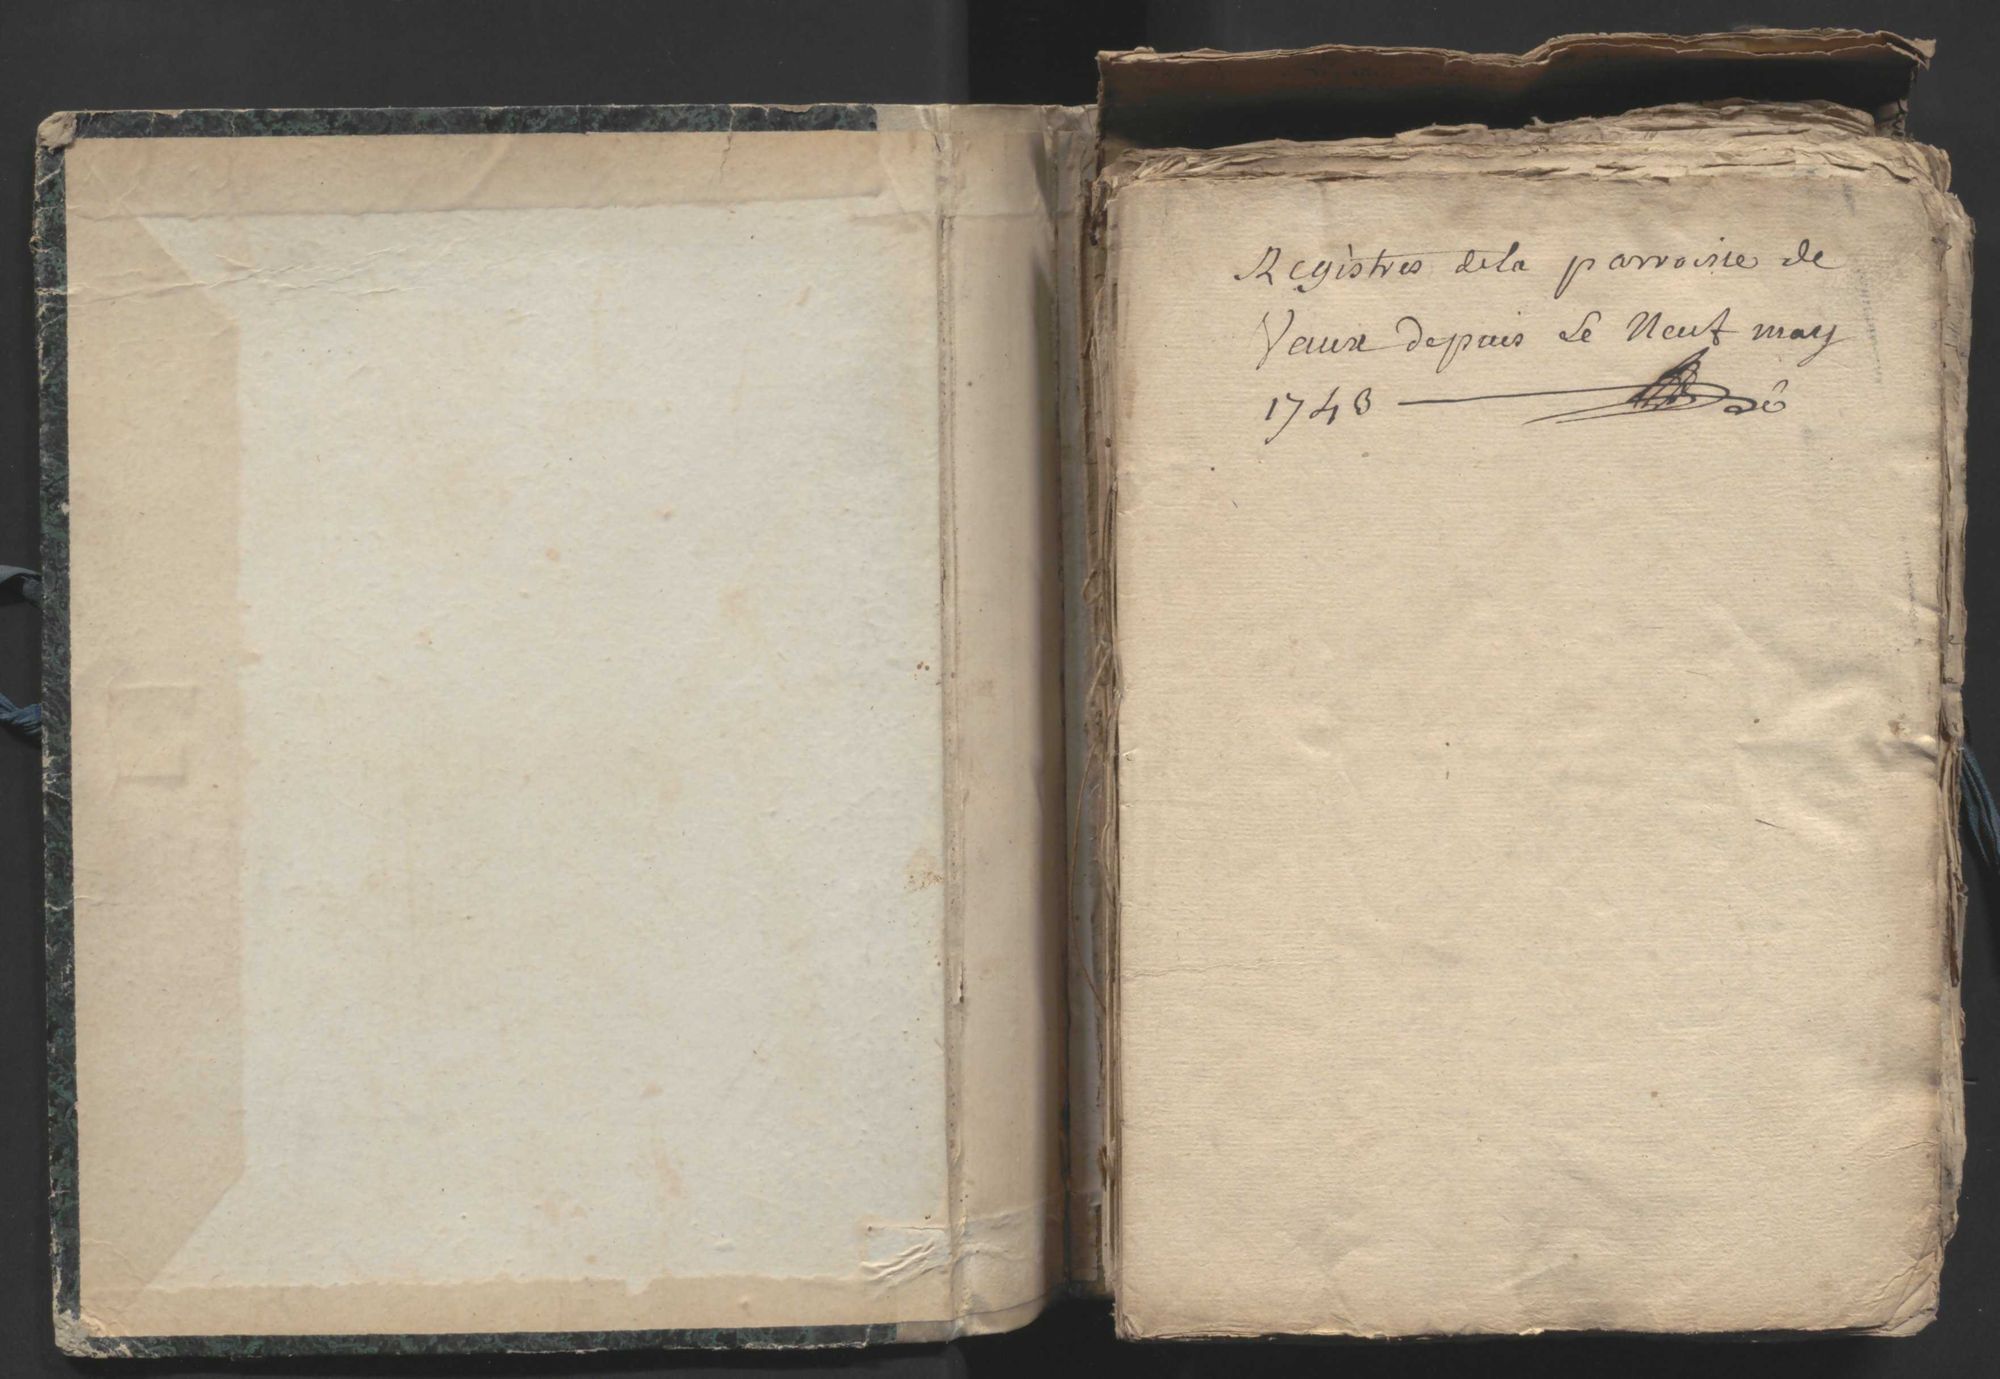 Registres dela parroisse de
Vaux depuis Le Neuf may
1743